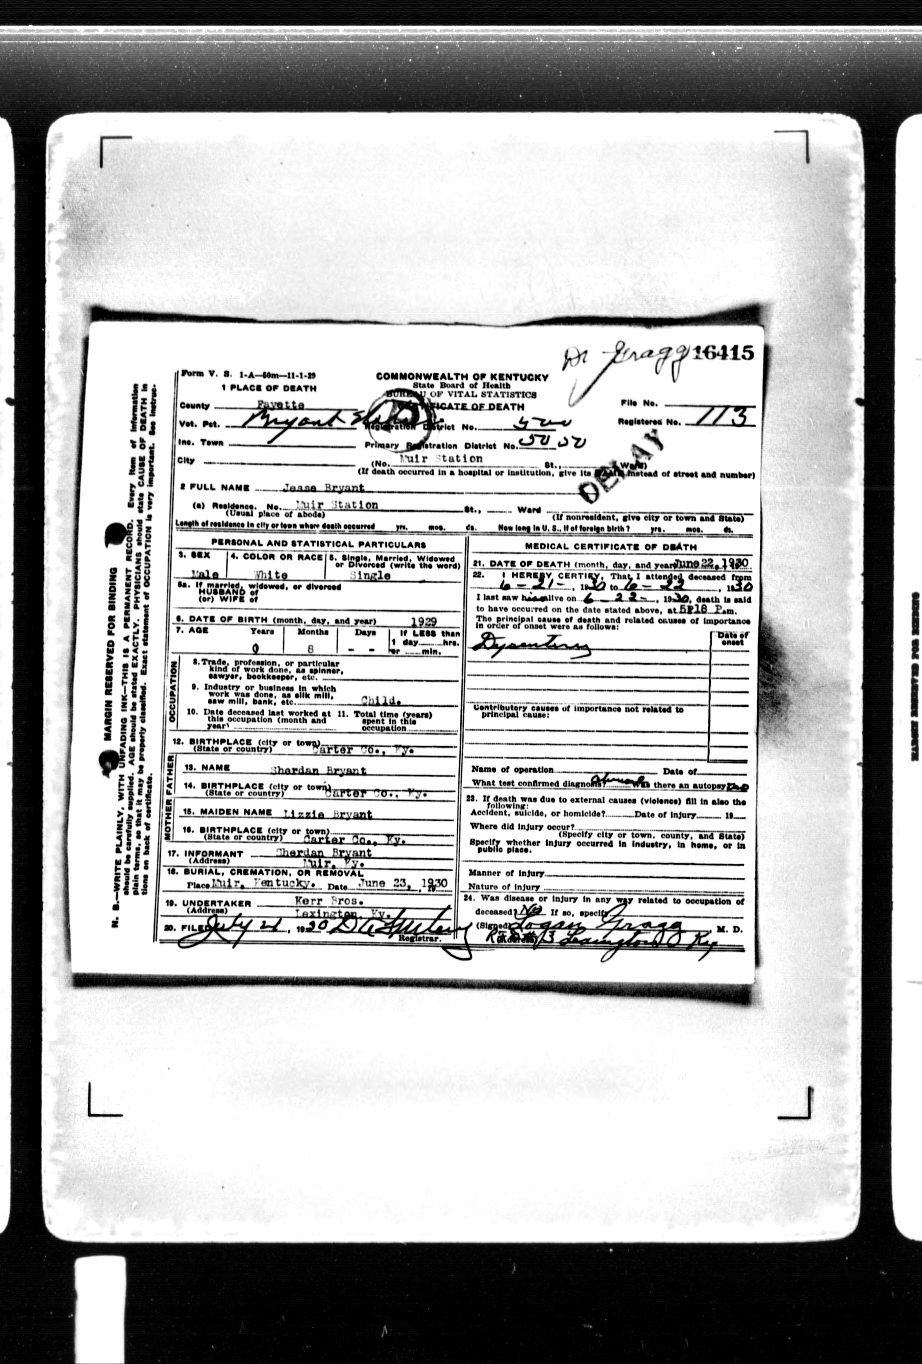 Dr Gragg 16415
Form V. S. 1-A—50m—11-1-29
COMMONWEALTH OF KENTUCKY
State Board of Health
BUREAU OF VITAL STATISTICS
CERTIFICATE OF DEATH
1 PLACE OF DEATH
County Fayette
File No.
Vot. Pct. Bryant Station
Registration District No.
Registered No. 113
Inc. Town
Primary Registration District No. 5050
City
(No. Muir Station St., Ward)
(If death occurred in a hospital or institution, give its instead of street and number)
DELAY
2 FULL NAME Jesse Bryant
(a) Residence. No. Muir Station St., Ward
(Usual place of abode)
(If nonresident, give city or town and State)
Length of residence in city or town where death occurred yrs. mos. ds. How long in U. S., if of foreign birth? yrs. mos. ds.
PERSONAL AND STATISTICAL PARTICULARS
3. SEX Male
4. COLOR OR RACE White
5. Single, Married, Widowed
or Divorced (write the word)
Single
5a. If married, widowed, or divorced
HUSBAND of
(or) WIFE of
6. DATE OF BIRTH (month, day, and year) 1929
7. AGE Years Months Days If LESS than
1 day hrs.
0 8 - - or min.
OCCUPATION
8. Trade, profession, or particular
kind of work done, as spinner,
sawyer, bookkeeper, etc.
9. Industry or business in which
work was done, as silk mill,
saw mill, bank, etc. Child.
10. Date deceased last worked at
this occupation (month and
year)
11. Total time (years)
spent in this
occupation
12. BIRTHPLACE (city or town)
(State or country) Carter Co., Ky.
FATHER
13. NAME Sherdan Bryant
14. BIRTHPLACE (city or town)
(State or country) Carter Co., Ky.
MOTHER
15. MAIDEN NAME Lizzie Bryant
16. BIRTHPLACE (city or town)
(State or country) Carter Co., Ky.
17. INFORMANT Sherdan Bryant
(Address) Muir, Ky.
18. BURIAL, CREMATION, OR REMOVAL
Place Muir, Kentucky. Date June 23, 1930
19. UNDERTAKER Kerr Bros.
(Address) Lexington, Ky.
20. FILED July 21, 1930
Registrar.
MEDICAL CERTIFICATE OF DEATH
21. DATE OF DEATH (month, day, and year) June 22, 1930
22. I HEREBY CERTIFY, That I attended deceased from
6-21-, 1930 to 6-22, 1930
I last saw h alive on 6-22-, 1930, death is said
to have occurred on the date stated above, at 5:18 P.m.
The principal cause of death and related causes of importance
in order of onset were as follows:
Date of
onset
Dysentery
Contributory causes of importance not related to
principal cause:
Name of operation Date of
What test confirmed diagnosis? Was there an autopsy? No
23. If death was due to external causes (violence) fill in also the
following:
Accident, suicide, or homicide? Date of injury 19
Where did injury occur?
(Specify city or town, county, and State)
Specify whether injury occurred in industry, in home, or in
public place.
Manner of injury
Nature of injury
24. Was disease or injury in any way related to occupation of
deceased? No If so, specify
(Signed) Logan Gragg M. D.
(Address) Lexington Ky
MARGIN RESERVED FOR BINDING
N. B.—WRITE PLAINLY, WITH UNFADING INK—THIS IS A PERMANENT RECORD. Every item of information
should be carefully supplied. AGE should be stated EXACTLY. PHYSICIANS should state CAUSE OF DEATH in
plain terms, so that it may be properly classified. Exact statement of OCCUPATION is very important. See instruc-
tions on back of certificate.